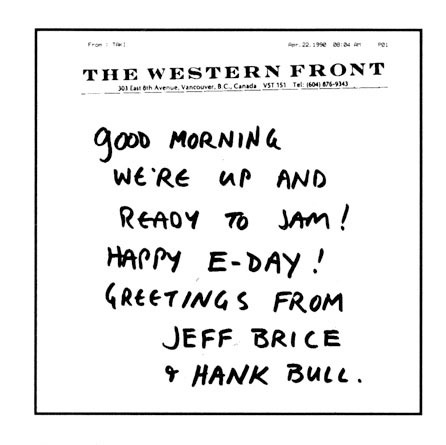 From : TAKI Apr.22.1990 08:04 AM P01
THE WESTERN FRONT
303 East 8th Avenue, Vancouver, B.C., Canada V5T 1S1 Tel: (604) 876-9343
GOOD MORNING
WE'RE UP AND
READY TO JAM!
HAPPY E-DAY!
GREETINGS FROM
JEFF BRICE
& HANK BULL.